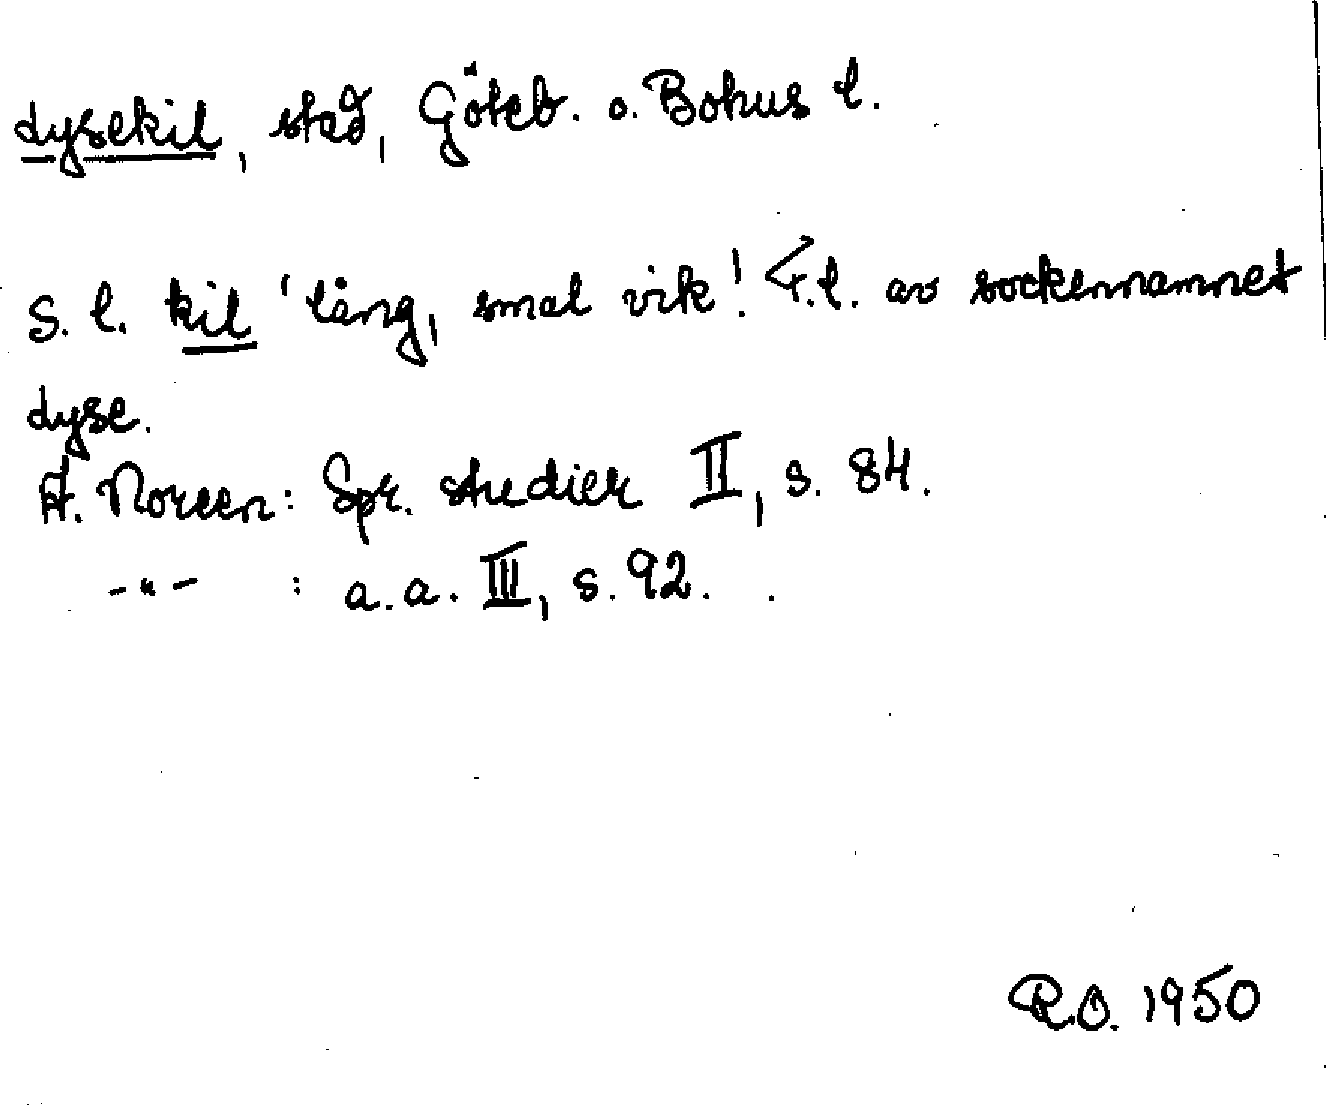 Lysekil, stad, Göteb. o. Bohus l.
S. l. kil 'lång, smal vik'. F.l. av sockennamnet
Lyse.
A. Noreen: Spr. studier II, s. 84.
-"- : a.a. III, s. 92.
R.O. 1950